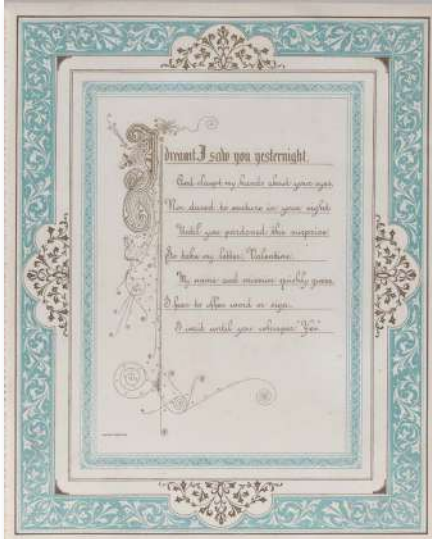 I dreamt I saw you yesternight,
And claspt my hands about your eyes,
Nor dared to venture in your sight
Until you pardoned this surprise.
So take my letter, Valentine.
My name and mission quickly guess,
I fear to offer word or sign.
I wait until you whisper "Yes"